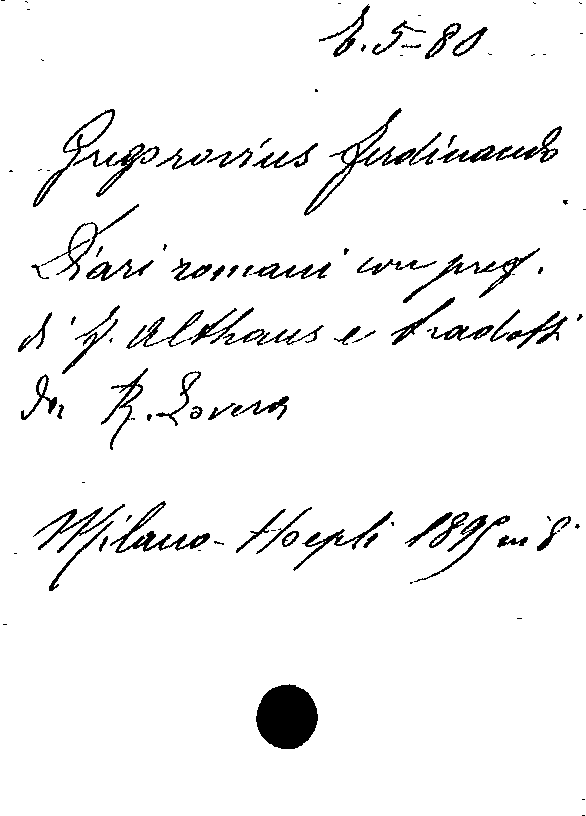 E.5-80
Gregorovius Ferdinando
Diari romani con pref.
di F. Althaus e tradotti
da R. Lovera
Milano - Hoepli 1895 in 8°